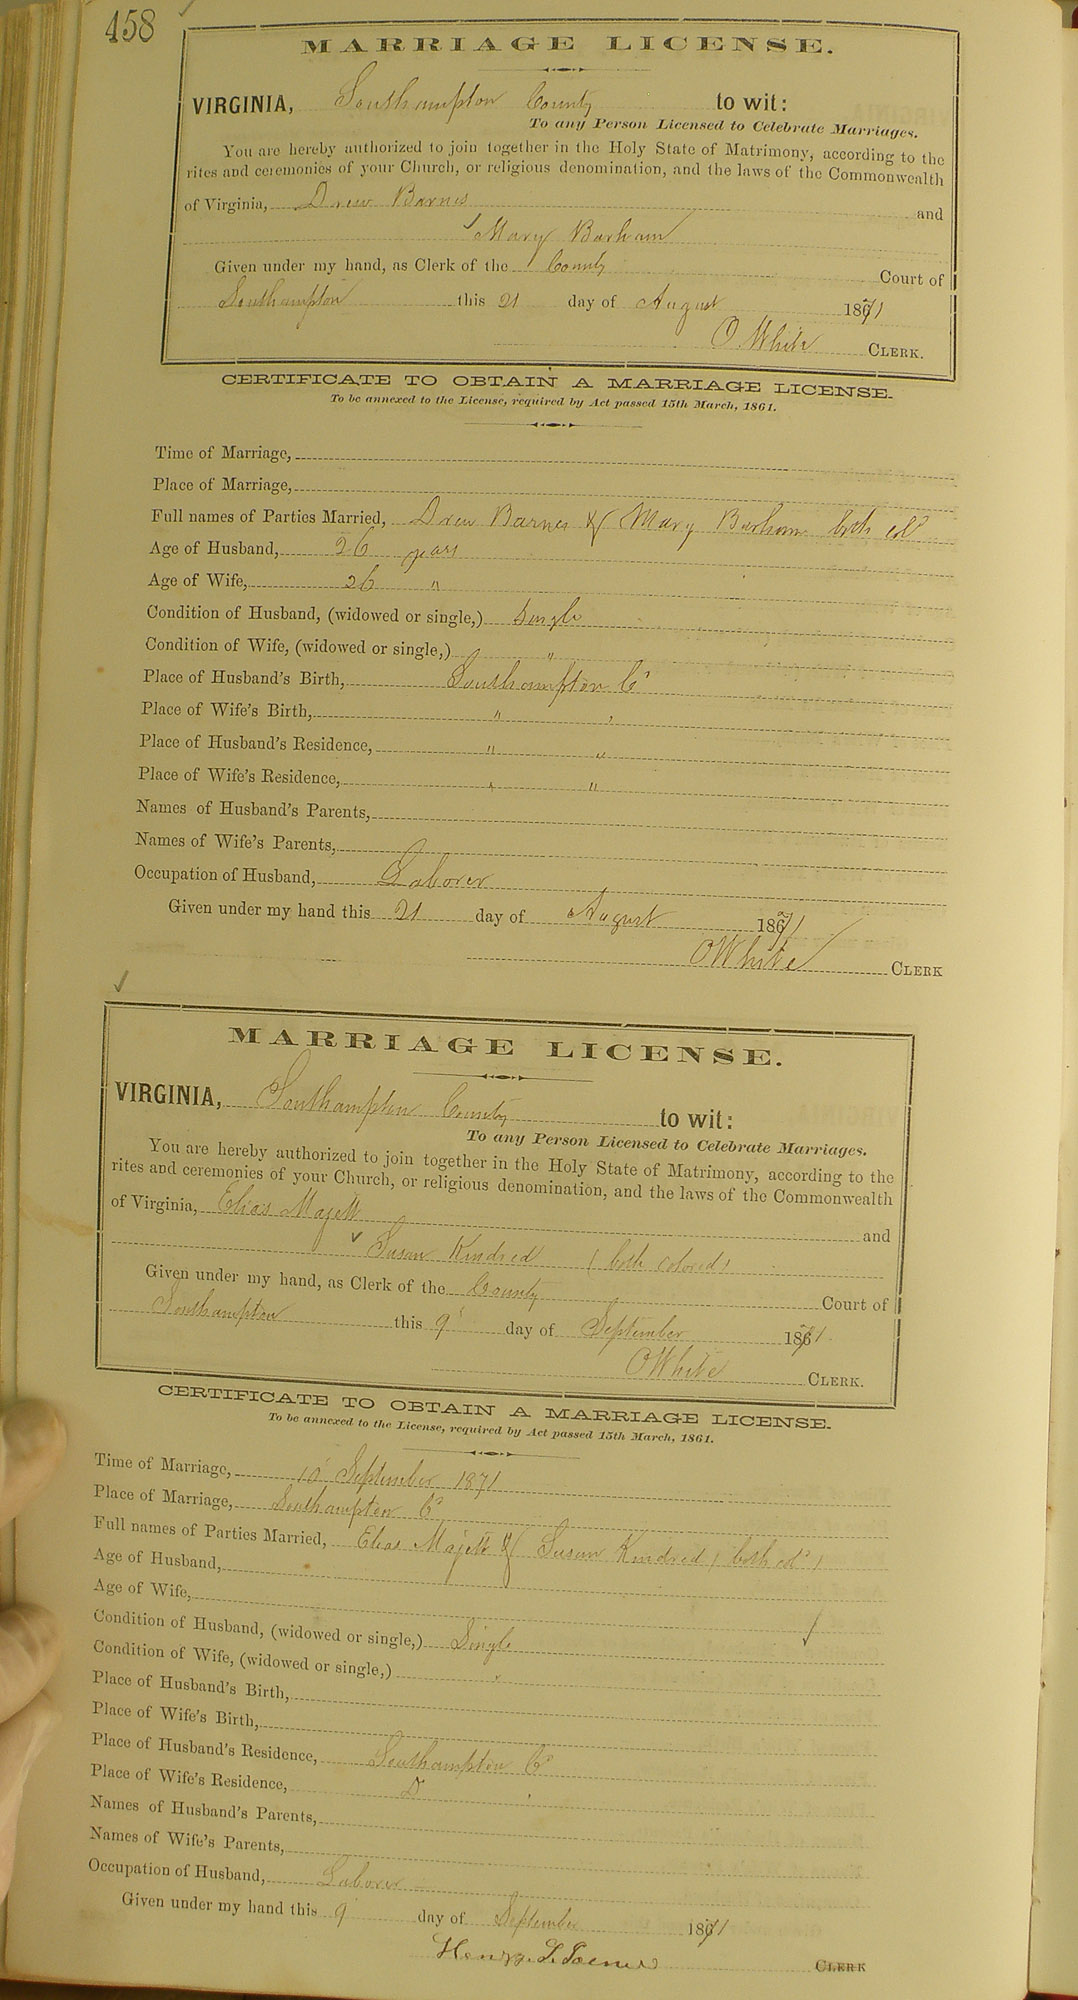 458
MARRIAGE LICENSE.
VIRGINIA, Southampton County to wit:
To any Person Licensed to Celebrate Marriages.
You are hereby authorized to join together in the Holy State of Matrimony, according to the
rites and ceremonies of your Church, or religious denomination, and the laws of the Commonwealth
of Virginia, Drew Barnes and
Mary Barham
Given under my hand, as Clerk of the County Court of
Southampton this 21 day of August 1871
O. White CLERK.
CERTIFICATE TO OBTAIN A MARRIAGE LICENSE.
To be annexed to the License, required by Act passed 15th March, 1861.
Time of Marriage,
Place of Marriage,
Full names of Parties Married, Drew Barnes & Mary Barham both cold
Age of Husband, 26 years
Age of Wife, 26 "
Condition of Husband, (widowed or single,) Single
Condition of Wife, (widowed or single,) "
Place of Husband's Birth, Southampton Co
Place of Wife's Birth, " "
Place of Husband's Residence, " "
Place of Wife's Residence, " "
Names of Husband's Parents,
Names of Wife's Parents,
Occupation of Husband, Laborer
Given under my hand this 21 day of August 1871
O White CLERK
MARRIAGE LICENSE.
VIRGINIA, Southampton County to wit:
To any Person Licensed to Celebrate Marriages.
You are hereby authorized to join together in the Holy State of Matrimony, according to the
rites and ceremonies of your Church, or religious denomination, and the laws of the Commonwealth
of Virginia, Elias Majett and
Susan Kindred (both colored)
Given under my hand, as Clerk of the County Court of
Southampton this 9 day of September 1871.
O White CLERK.
CERTIFICATE TO OBTAIN A MARRIAGE LICENSE.
To be annexed to the License, required by Act passed 15th March, 1861.
Time of Marriage, 10 September 1871
Place of Marriage, Southampton Co
Full names of Parties Married, Elias Majett & Susan Kindred (both cold)
Age of Husband,
Age of Wife,
Condition of Husband, (widowed or single,) Single
Condition of Wife, (widowed or single,) "
Place of Husband's Birth,
Place of Wife's Birth,
Place of Husband's Residence, Southampton Co
Place of Wife's Residence, Do
Names of Husband's Parents,
Names of Wife's Parents,
Occupation of Husband, Laborer
Given under my hand this 9 day of September 1871
Henry CLERK